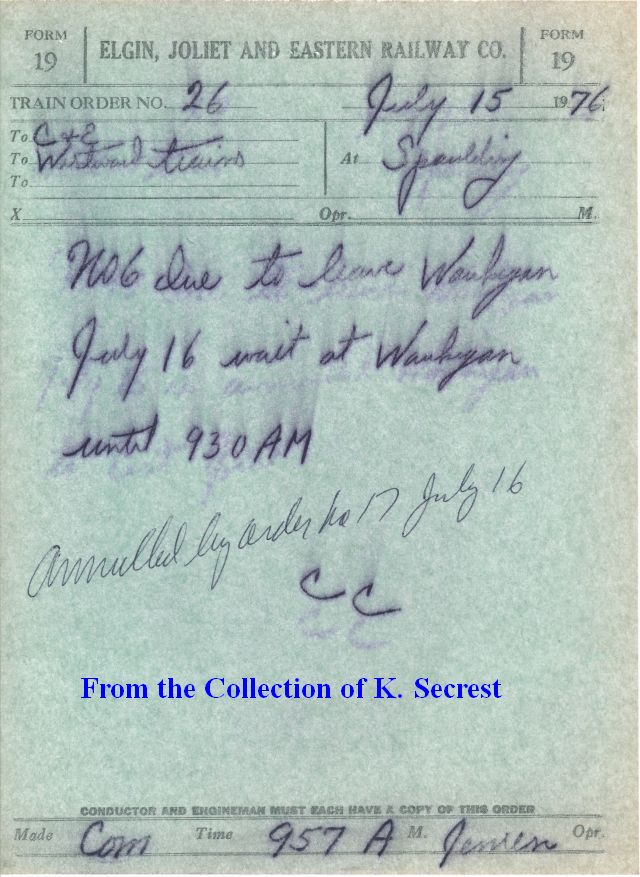 FORM 19 ELGIN, JOLIET AND EASTERN RAILWAY CO. FORM 19
TRAIN ORDER NO. 26 July 15 1976
To C & E
To Westward trains At Spaulding
To
X Opr. M.
No 6 due to leave Waukegan
July 16 wait at Waukegan
until 930 AM
Annulled by order no 17 July 16
CC
From the Collection of K. Secrest
CONDUCTOR AND ENGINEMAN MUST EACH HAVE A COPY OF THIS ORDER
Made Com Time 957 A M. Jensen Opr.